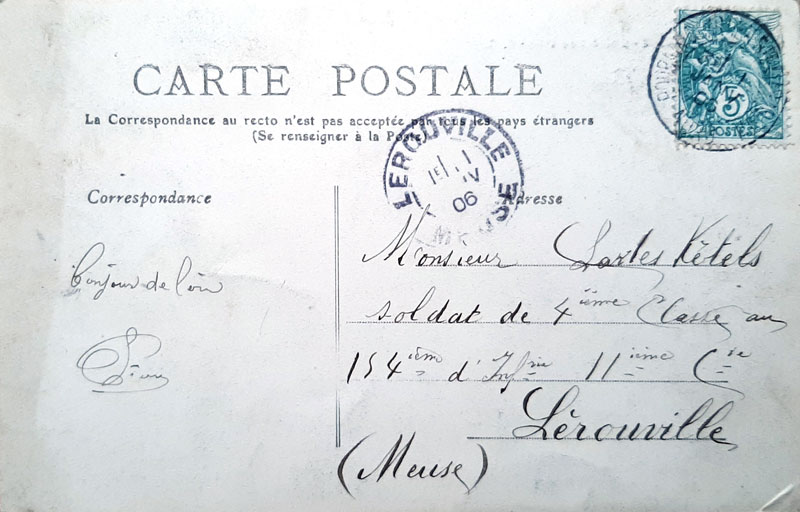 CARTE POSTALE
La Correspondance au recto n'est pas acceptée par tous les pays étrangers
(Se renseigner à la Poste)
LEROUVILLE
1
IV
06
MEUSE
5
POSTES
Correspondance
Adresse
bonjour de loin
Monsieur Kétels
soldat de 4ième Classe au
154ième d'Infrie 11ième Cie
Lérouville
(Meuse)